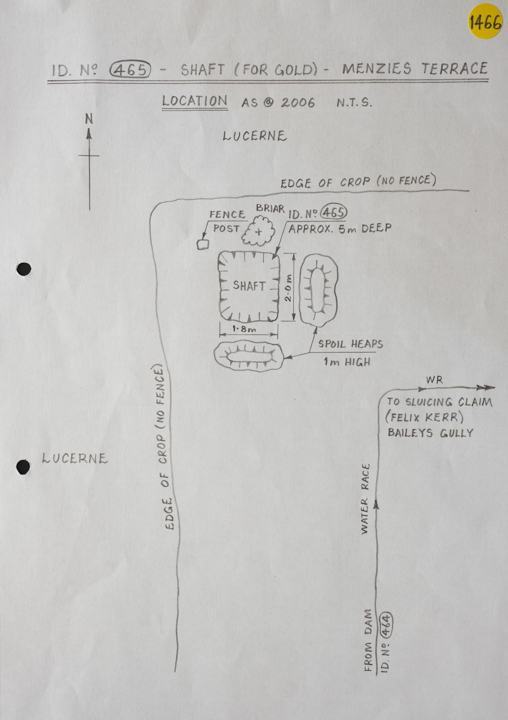 1466
ID. Nº 465 - SHAFT (FOR GOLD) - MENZIES TERRACE
LOCATION AS @ 2006 N.T.S.
N
LUCERNE
EDGE OF CROP (NO FENCE)
FENCE
POST
BRIAR
ID. Nº 465
APPROX. 5m DEEP
SHAFT
2.0m
1.8m
SPOIL HEAPS
1m HIGH
WR
TO SLUICING CLAIM
(FELIX KERR)
BAILEYS GULLY
LUCERNE
EDGE OF CROP (NO FENCE)
WATER RACE
FROM DAM
ID. Nº 464